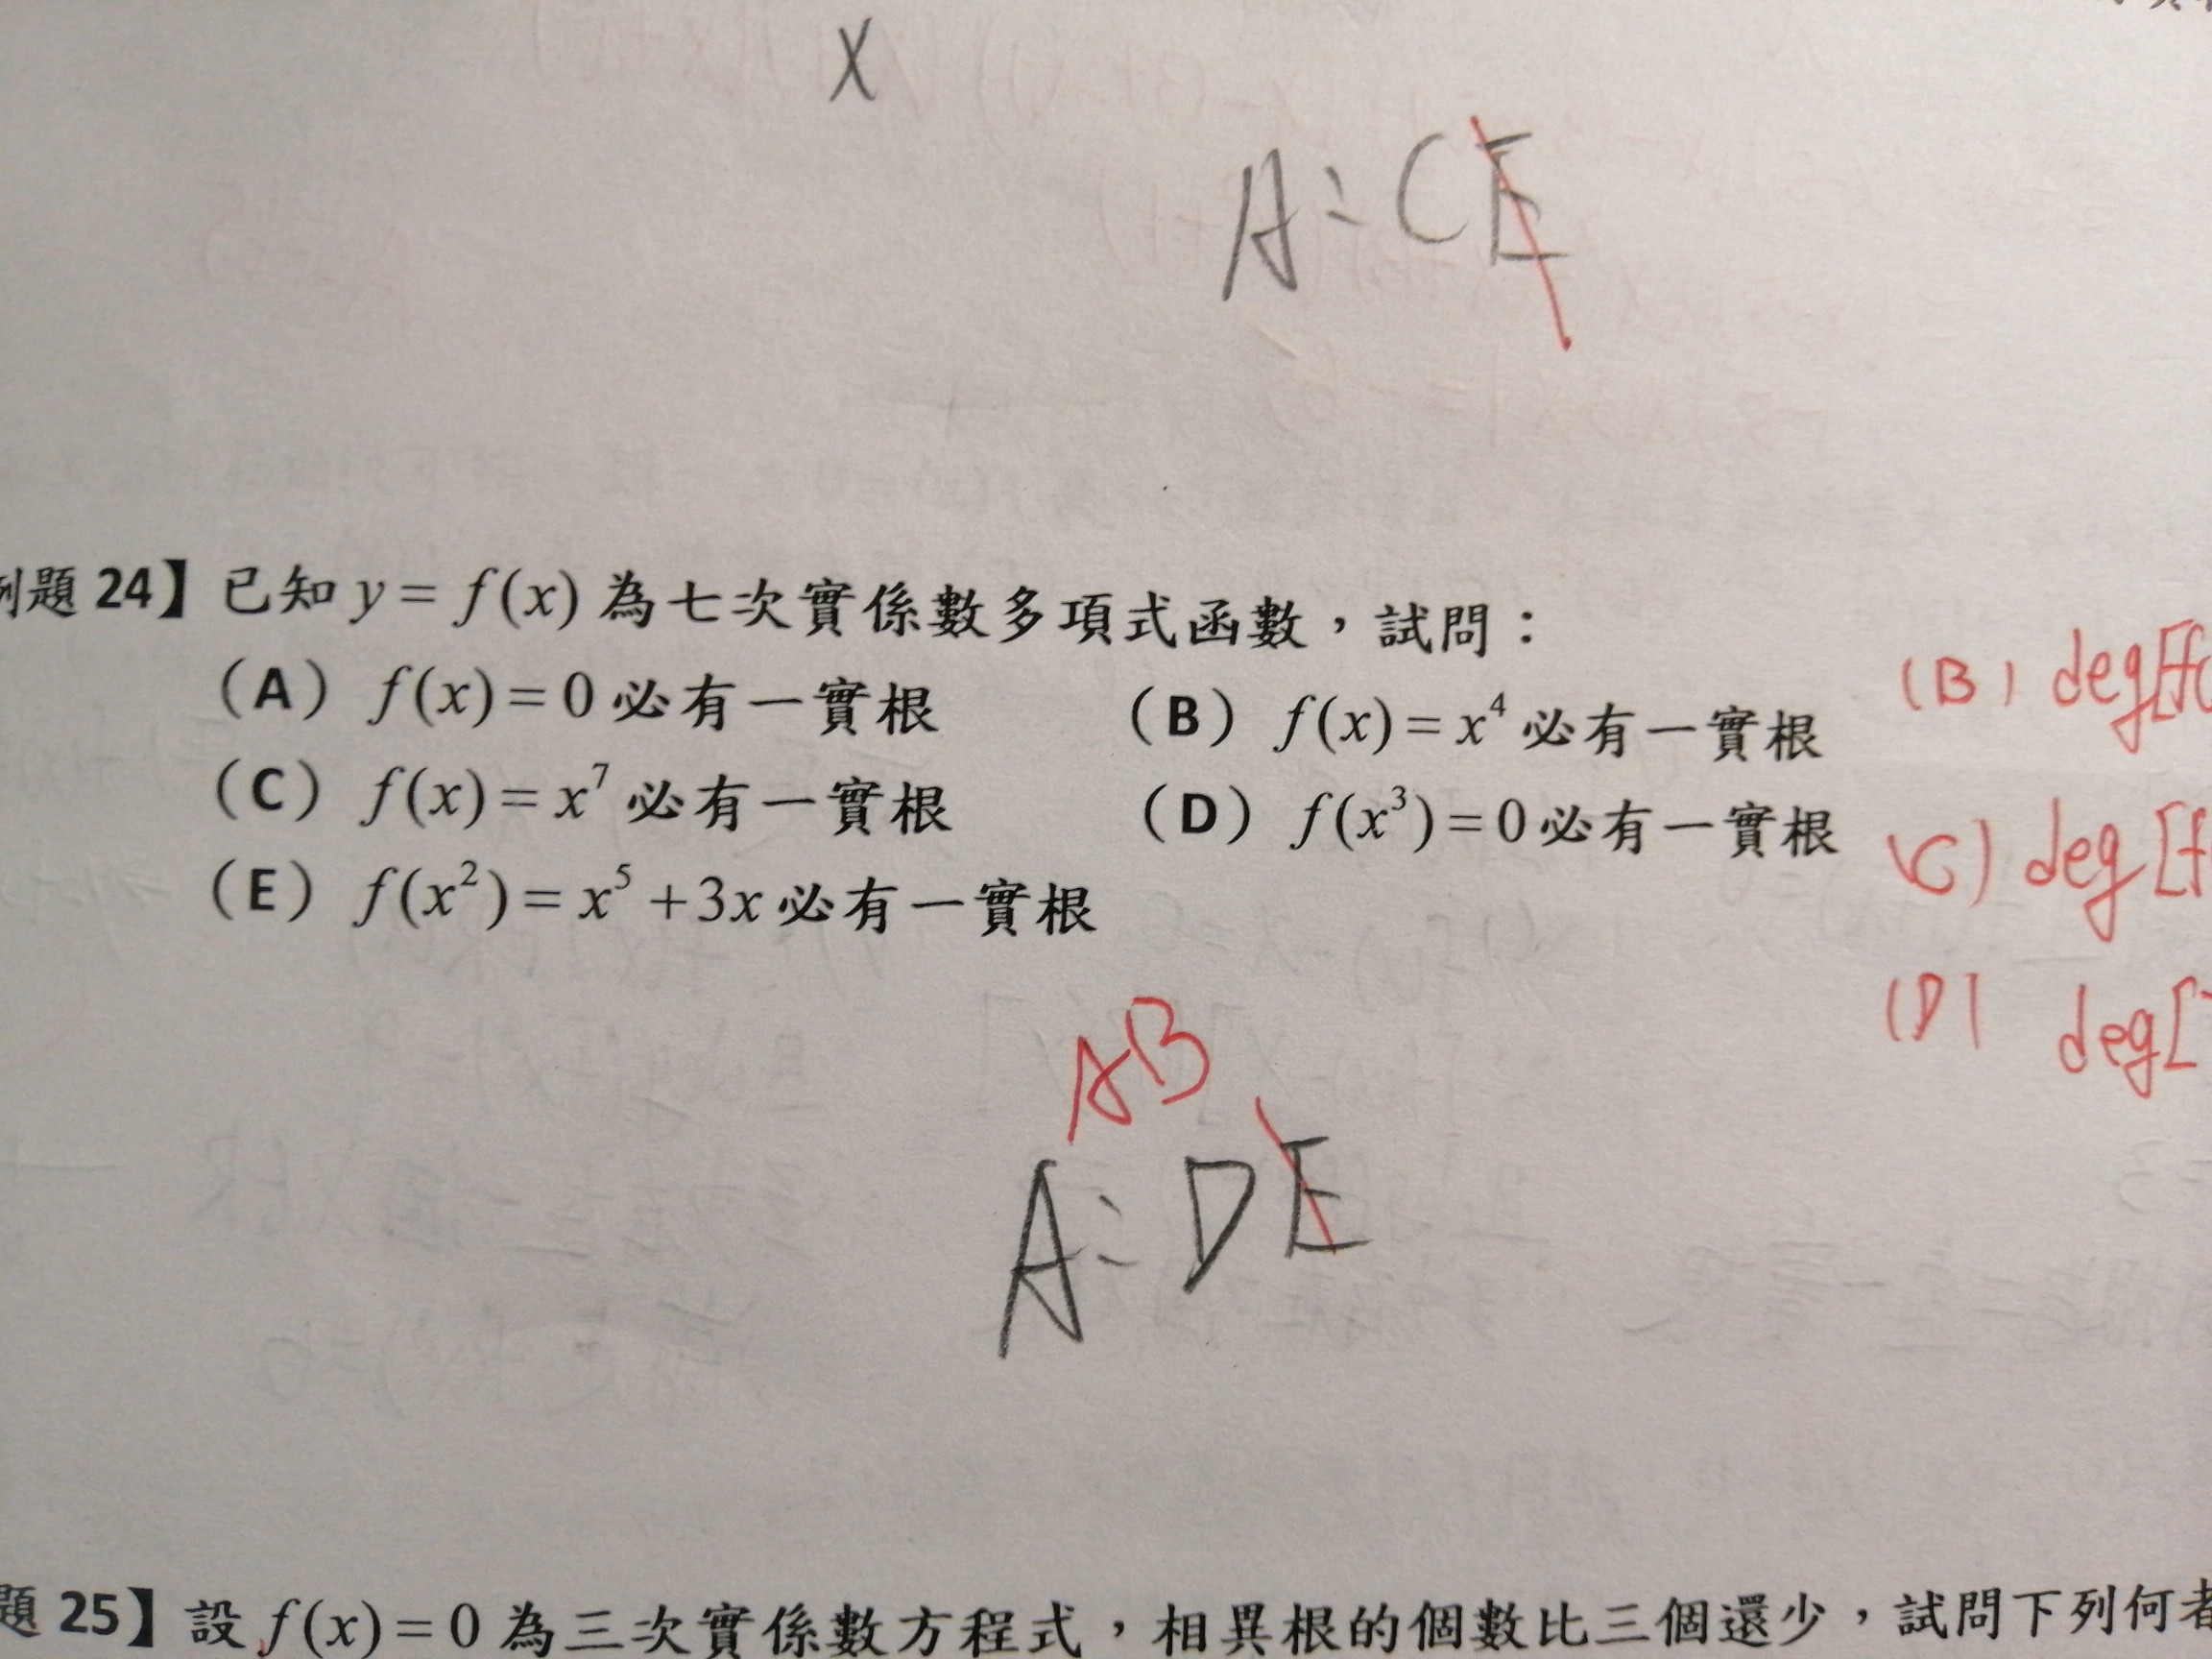 X
A：CE
例題 24】已知 y = f(x) 為七次實係數多項式函數，試問：
（A）f(x) = 0 必有一實根 （B）f(x) = x⁴ 必有一實根
（B）deg[f(
（C）f(x) = x⁷ 必有一實根 （D）f(x³) = 0 必有一實根
（C）deg[f
（E）f(x²) = x⁵ + 3x 必有一實根
（D）deg[
AB
A：DE
題 25】設 f(x) = 0 為三次實係數方程式，相異根的個數比三個還少，試問下列何者